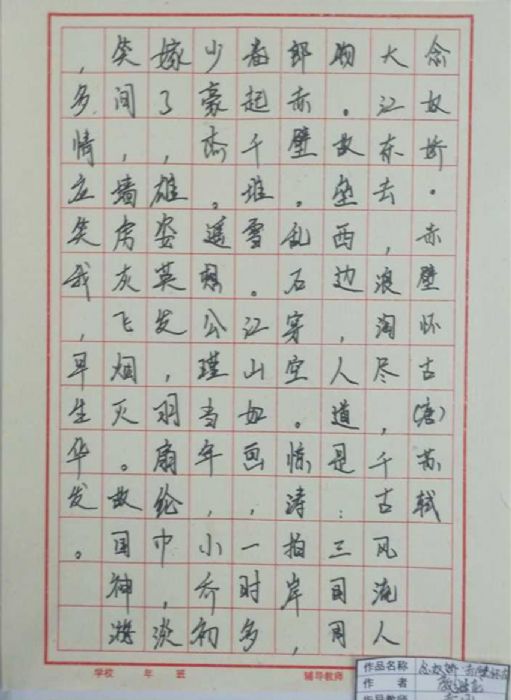 念奴娇·赤壁怀古(唐)苏轼
大江东去,浪淘尽,千古风流人
物。故垒西边,人道是:三国周
郎赤壁。乱石穿空。惊涛拍岸
卷起千堆雪。江山如画,一时多
少豪杰。遥想公瑾当年,小乔初
嫁了,雄姿英发,羽扇纶巾,谈
笑间,墙虏灰飞烟灭。故国神游
,多情应笑我,早生华发。
学校 年 班 辅导教师
作品名称 念奴娇·赤壁怀古
作者
辅导教师